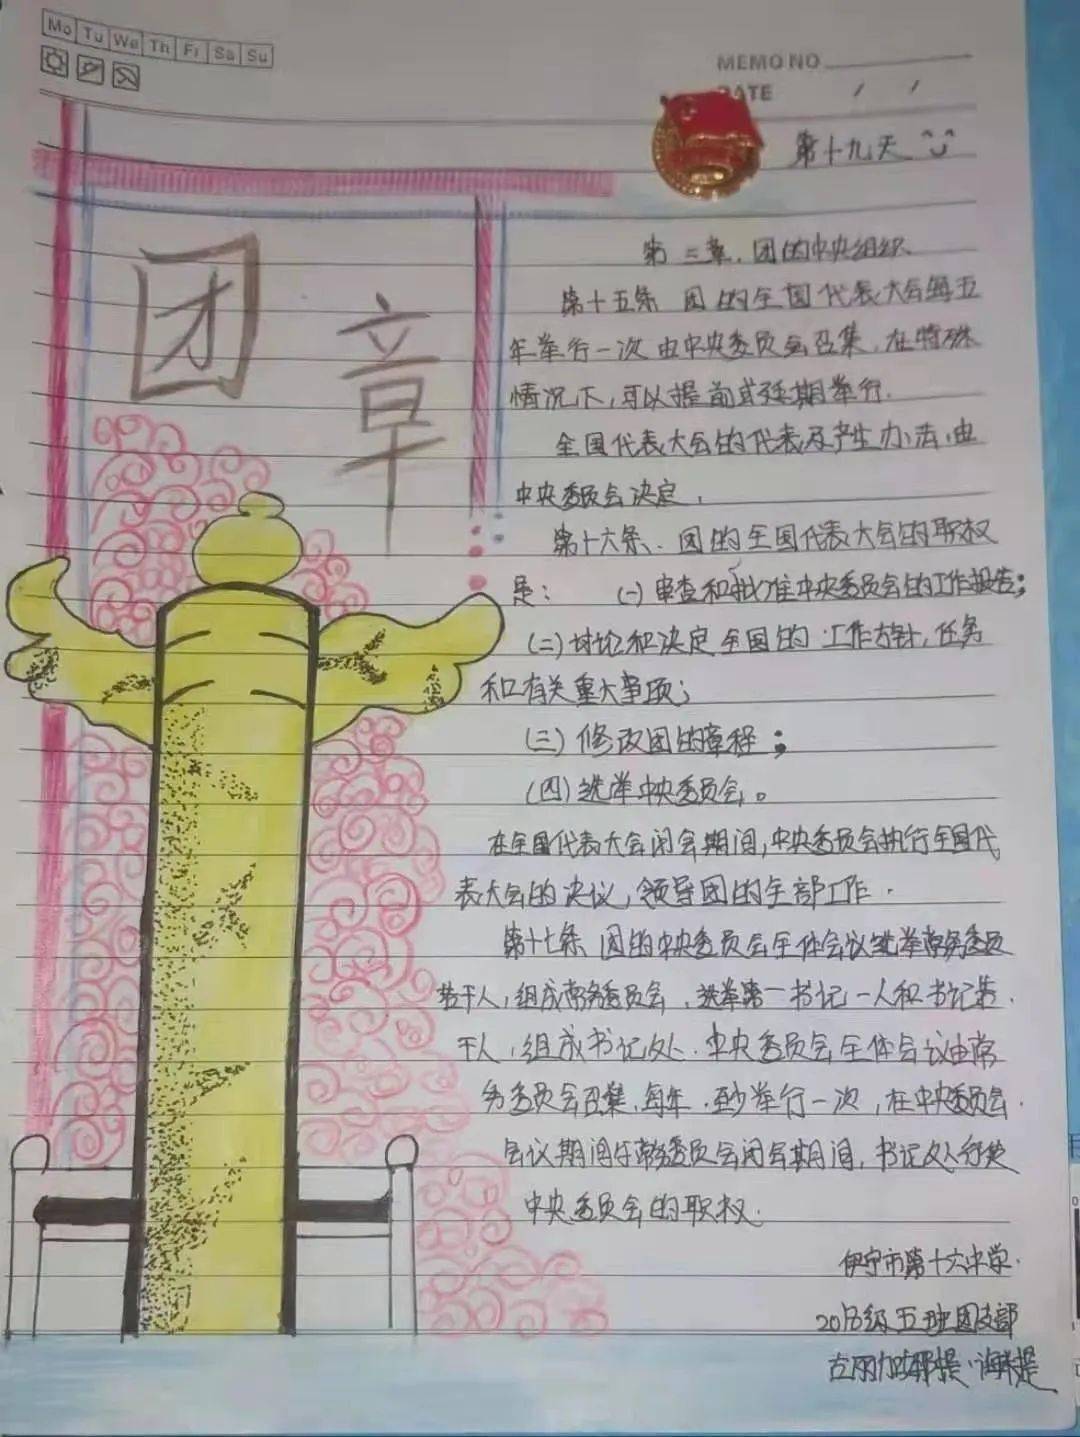 Mo Tu We Th Fr Sa Su
MEMO NO
DATE / /
第十九天
团章
第三章.团的中央组织
第十五条 团的全国代表大会每五
年举行一次由中央委员会召集.在特殊
情况下,可以提前或延期举行.
全国代表大会的代表及产生办法,由
中央委员会决定.
第十六条、团的全国代表大会的职权
是: (一)审查和批准中央委员会的工作报告;
(二)讨论和决定全国的工作方针,任务
和有关重大事项;
(三)修改团的章程;
(四)选举中央委员会。
在全国代表大会闭会期间,中央委员会执行全国代
表大会的决议,领导团的全部工作.
第十七条 团的中央委员会全体会议选举常务委员
若干人,组成常务委员会,选举第一书记一人和书记若.
干人,组成书记处.中央委员会全体会议由常
务委员会召集,每年.至少举行一次,在中央委员会.
会议期间 常务委员会闭会期间,书记处行使
中央委员会的职权.
伊宁市第十六中学.
级五班团支部